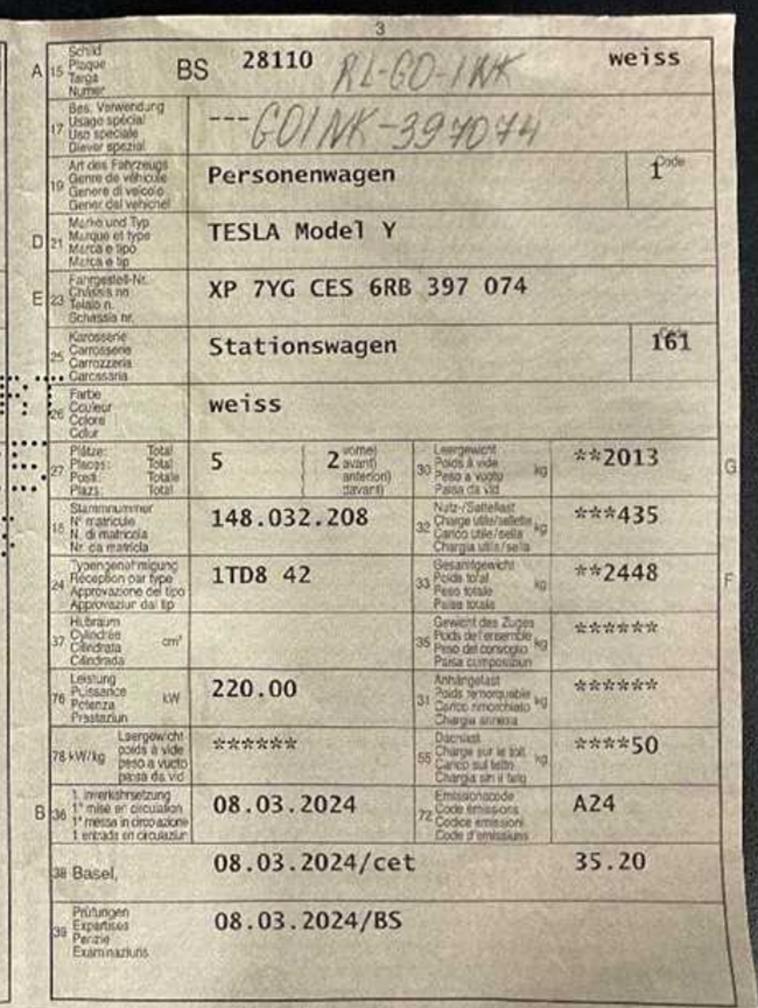 3
A 15 Schild Plaque Targa Numer BS 28110 RL-GO-INK weiss
17 Bes. Verwendung Usage spécial Uso speciale Diever spezial --- GOINK-397074
19 Art des Fahrzeugs Genre de véhicule Genere di veicolo Gener dal vehichel Personenwagen Code 1
D 21 Marke und Typ Marque et type Marca e tipo Marca e tip TESLA Model Y
E 23 Fahrgestell-Nr. Châssis no Telaio n. Schassis nr. XP 7YG CES 6RB 397 074
25 Karosserie Carrosserie Carrozzeria Carossaria Stationswagen Code 161
26 Farbe Couleur Colore Colur weiss
27 Plätze: Total Places: Total Posti: Totale Plazs: Total 5 ( 2 vorne) avant) anteriori) davant) 30 Leergewicht Poids à vide Peso a vuoto Paisa da vid kg **2013 G
18 Stammnummer N° matricule N. di matricola Nr. da matricla 148.032.208 32 Nutz-/Sattellast Charge utile/sellette Carico utile/sella Chargia utila/sella kg ***435
24 Typengenehmigung Réception par type Approvazione del tipo Approvaziun dal tip 1TD8 42 33 Gesamtgewicht Poids total Peso totale Paisa totala kg **2448 F
37 Hubraum Cylindrée Cilindrata Cilindrada cm³ 35 Gewicht des Zuges Poids de l'ensemble Peso del convoglio Paisa cumposiziun kg ******
76 Leistung Puissance Potenza Prestaziun kW 220.00 31 Anhängelast Poids remorquable Carico rimorchiato Chargia annexa kg ******
78 kW/kg Leergewicht poids à vide peso a vuoto paisa da vid ****** 55 Dachlast Charge sur le toit Carico sul tetto Chargia sin il tetg kg ****50
B 36 1. Inverkehrsetzung 1re mise en circulation 1a messa in circolazione 1 entrada en circulaziun 08.03.2024 72 Emissionscode Code émissions Codice emissioni Code d'emissiuns A24
38 Basel, 08.03.2024/cet 35.20
39 Prüfungen Expertises Perizie Examinaziuns 08.03.2024/BS